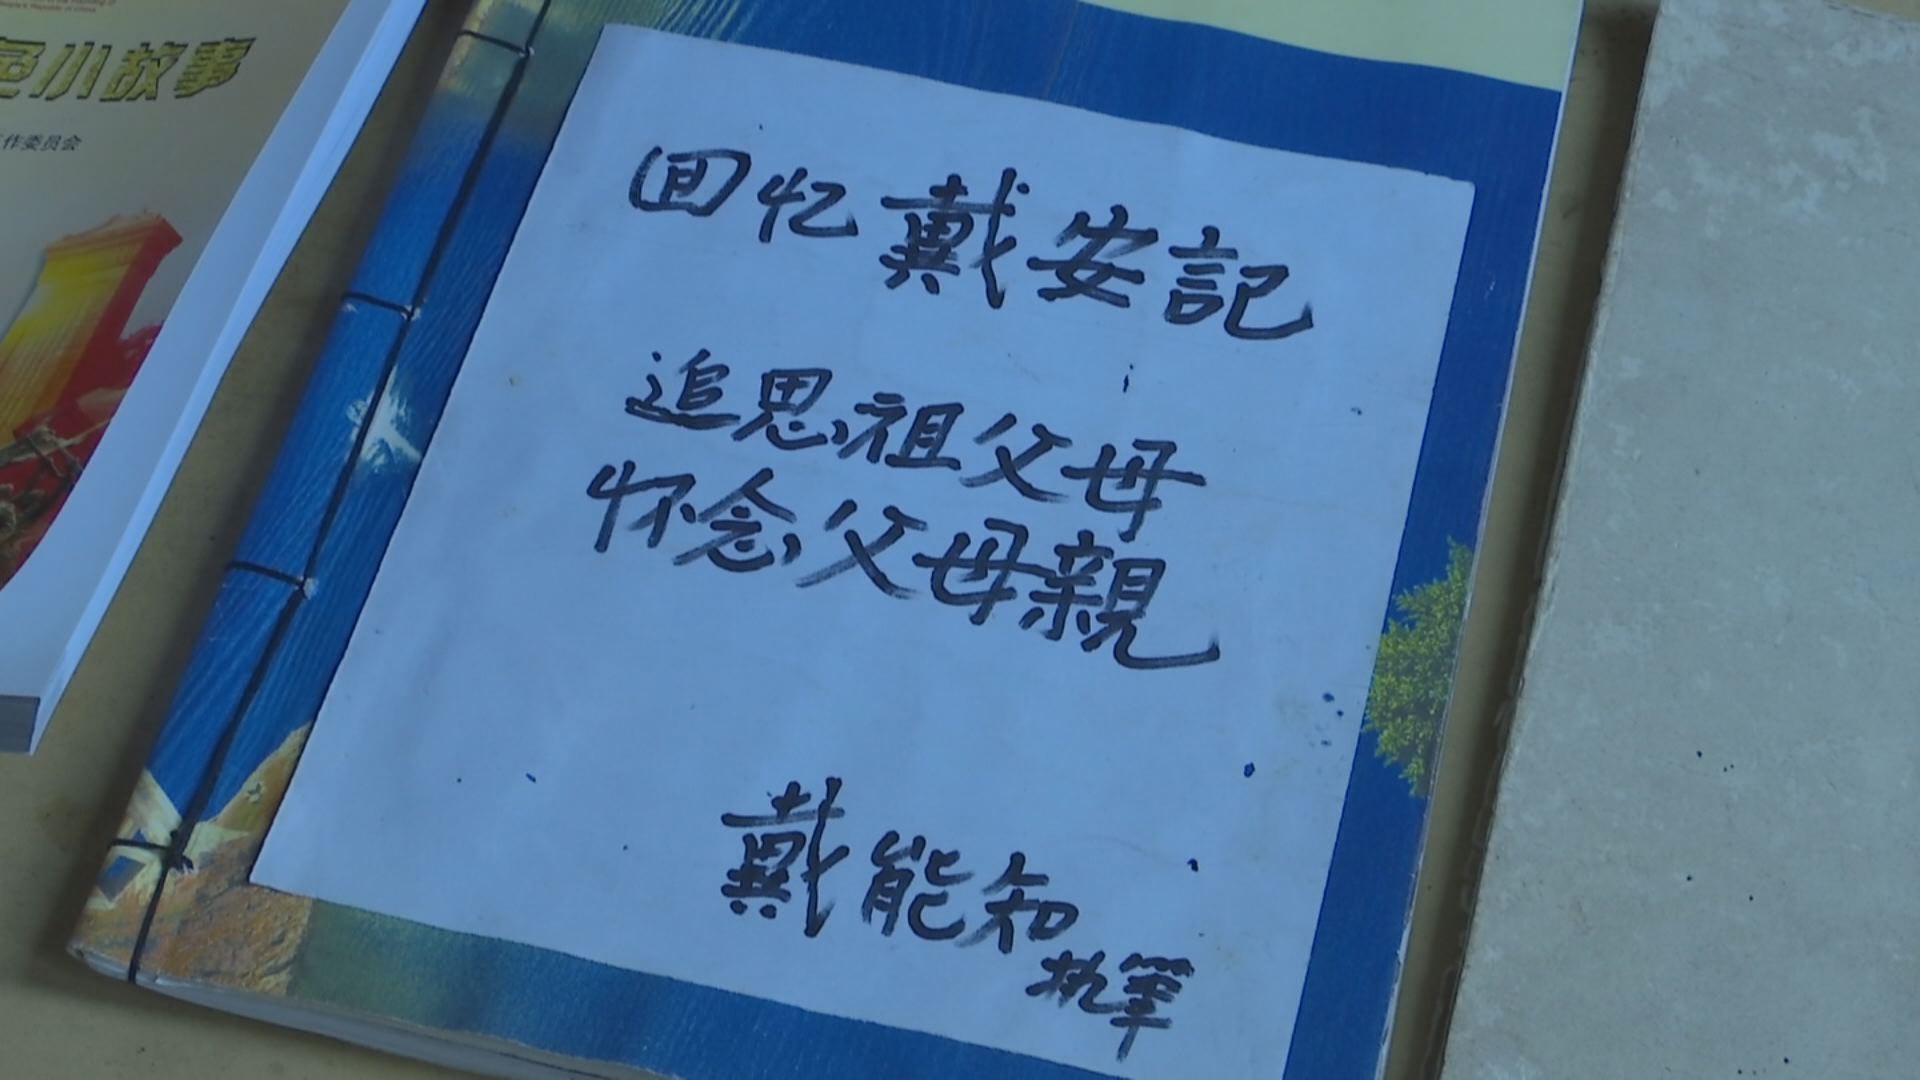 People's Republic of China
色小故事
作委员会
回忆戴安記
追思祖父母
怀念父母親
戴能知
执筆